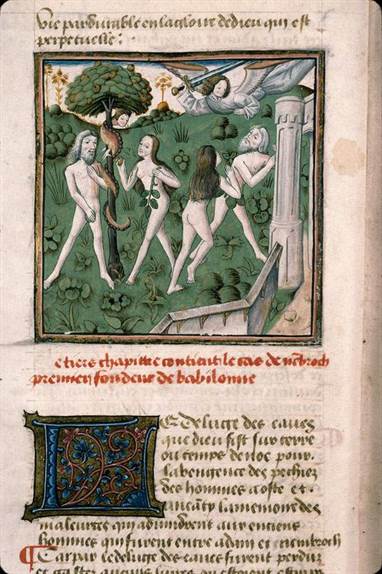 Vie pardurable en la gloire de dieu qui est
perpetuelle.
e tiers chapitre contient le cas de nembroch
premier fondeur de babilonne
LE deluge des eaues
que dieu fist sur terre
ou temps de noe pour
la vengence des pechiez
des hommes a oste et
la memoire des
maleurtez qui advindrent aux enciens
hommes qui furent entre adam et nembroch
Car par le deluge des eaues furent perduz
et gastez